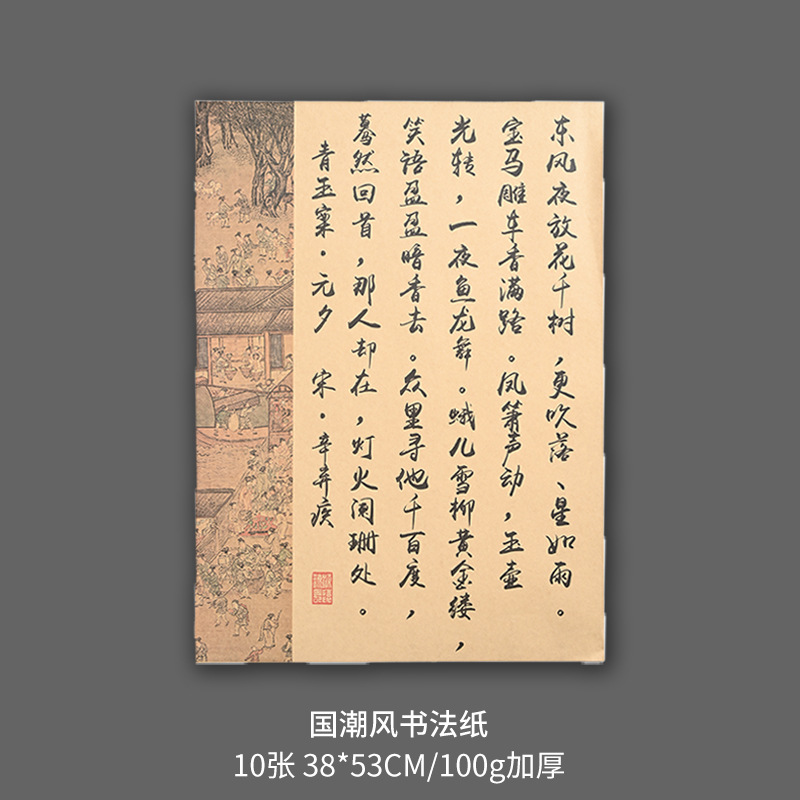 东风夜放花千树，更吹落、星如雨。
宝马雕车香满路。凤箫声动，玉壶
光转，一夜鱼龙舞。蛾儿雪柳黄金缕，
笑语盈盈暗香去。众里寻他千百度，
蓦然回首，那人却在，灯火阑珊处。
青玉案·元夕 宋·辛弃疾
国潮风书法纸
10张 38*53CM/100g加厚